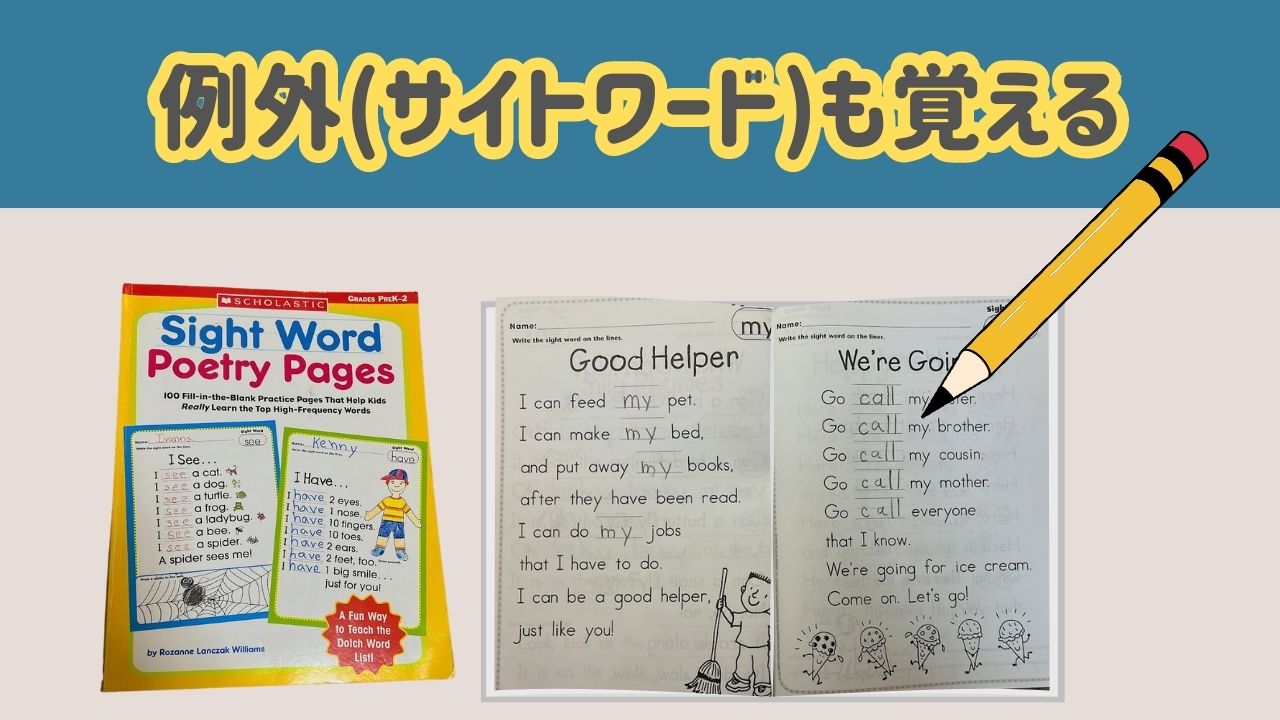 例外(サイトワード)も覚える
SCHOLASTIC
GRADES PREK–2
Sight Word
Poetry Pages
100 Fill-in-the-Blank Practice Pages That Help Kids
Really Learn the Top High-Frequency Words
Name: Ivanna
Sight Word
see
Write the sight word on the lines.
I See...
I see a cat.
I see a dog.
I see a turtle.
I see a frog.
I see a ladybug.
I see a bee.
I see a spider.
A spider sees me!
Name: Kenny
Sight Word
have
I Have...
I have 2 eyes.
I have 1 nose.
I have 10 fingers.
I have 10 toes.
I have 2 ears.
I have 2 feet, too.
I have 1 big smile...
just for you!
A Fun Way
to Teach the
Dolch Word
List!
by Rozanne Lanczak Williams
Name:
my
Write the sight word on the lines.
Good Helper
I can feed my pet.
I can make my bed,
and put away my books,
after they have been read.
I can do my jobs
that I have to do.
I can be a good helper,
just like you!
Name:
Write the sight word on the lines.
We're
Go call my
Go call my brother.
Go call my cousin.
Go call my mother.
Go call everyone
that I know.
We're going for ice cream.
Come on. Let's go!